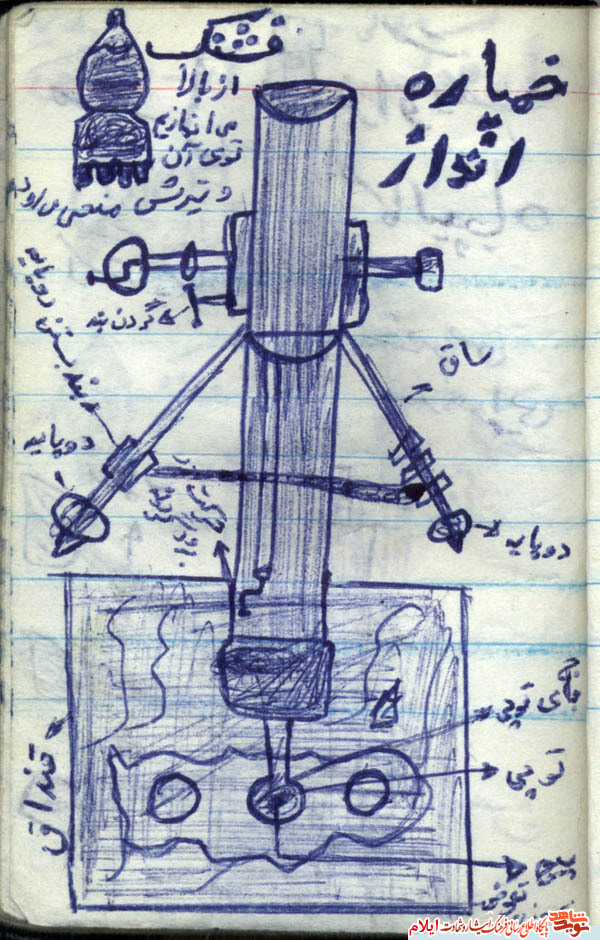 خمپاره
انداز
فشنگ
از بالا
می اندازیم
توی آن
و تیرش منحنی می رود
گردن بند
بند بستن دوپایه
ساق
دوپایه
دوپایه
قنداق
جای توپی
توپی
پیچ
توپی
نوید شاهد
پایگاه اطلاع رسانی فرهنگ ایثار و شهادت ایلام